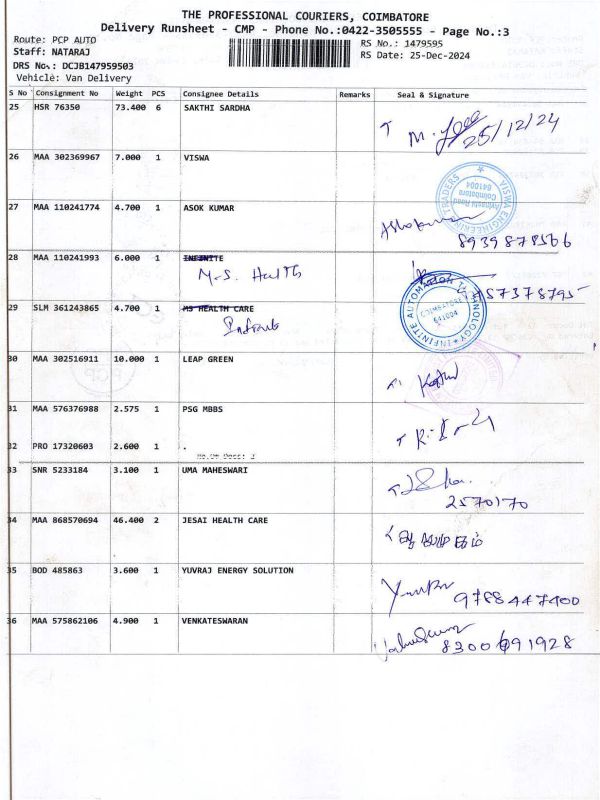 THE PROFESSIONAL COURIERS, COIMBATORE
Delivery Runsheet - CMP - Phone No.:0422-3505555 - Page No.:3
Route: PCP AUTO
RS No.: 1479595
Staff: NATARAJ
RS Date: 25-Dec-2024
DRS No.: DCJB147959503
Vehicle: Van Delivery
S No Consignment No Weight PCS Consignee Details Remarks Seal & Signature
25 HSR 76350 73.400 6 SAKTHI SARDHA
25/12/24
26 MAA 302369967 7.000 1 VISWA
VISWA ENGINEERING TRADERS
Avinashi Road
Coimbatore
641004
27 MAA 110241774 4.700 1 ASOK KUMAR
Ashokumar
8939878566
28 MAA 110241993 6.000 1 INFINITE
M-S. Health
29 SLM 361243865 4.700 1 MS HEALTH CARE
INFINITE AUTOMATION TECHNOLOGY
COIMBATORE
641004
30 MAA 302516911 10.000 1 LEAP GREEN
31 MAA 576376988 2.575 1 PSG MBBS
32 PRO 17320603 2.600 1 .
33 SNR 5233184 3.100 1 UMA MAHESWARI
2570170
34 MAA 868570694 46.400 2 JESAI HEALTH CARE
35 BOD 485863 3.600 1 YUVRAJ ENERGY SOLUTION
9788447400
36 MAA 575862106 4.900 1 VENKATESWARAN
8300691928